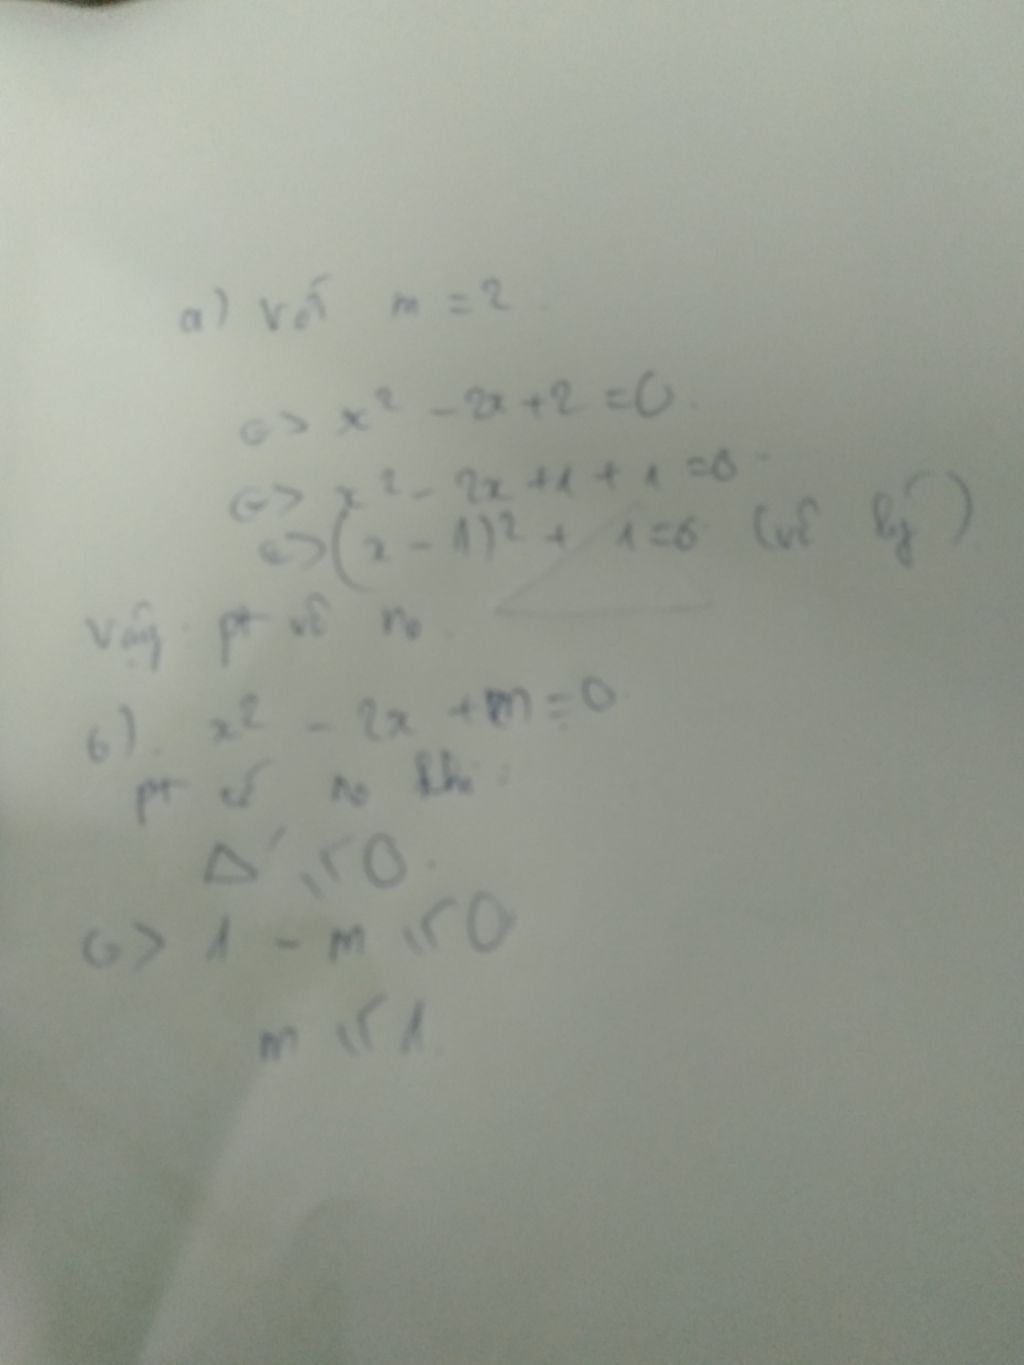 a) với m = 2.
<=> x² - 2x + 2 = 0.
<=> x² - 2x + 1 + 1 = 0
<=> (x - 1)² + 1 = 0 (vô lý)
Vậy pt vô no.
b). x² - 2x + m = 0.
pt có no khi:
Δ' ≥ 0.
<=> 1 - m ≥ 0
m ≤ 1.